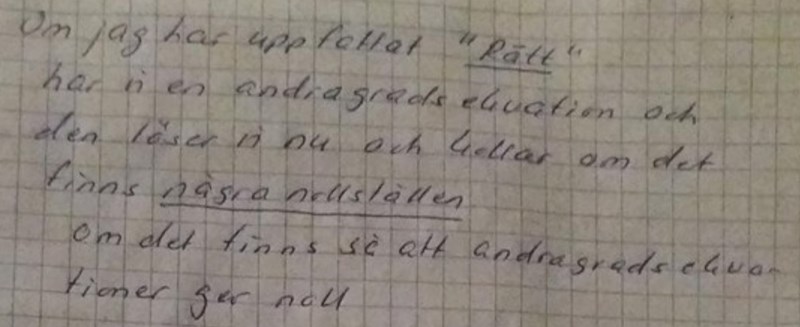 Om jag har uppfattat "Rätt"
har vi en andragradsekvation och
den löser vi nu och kollar om det
finns några nollställen
om det finns så att andragradsekva-
tioner ger noll